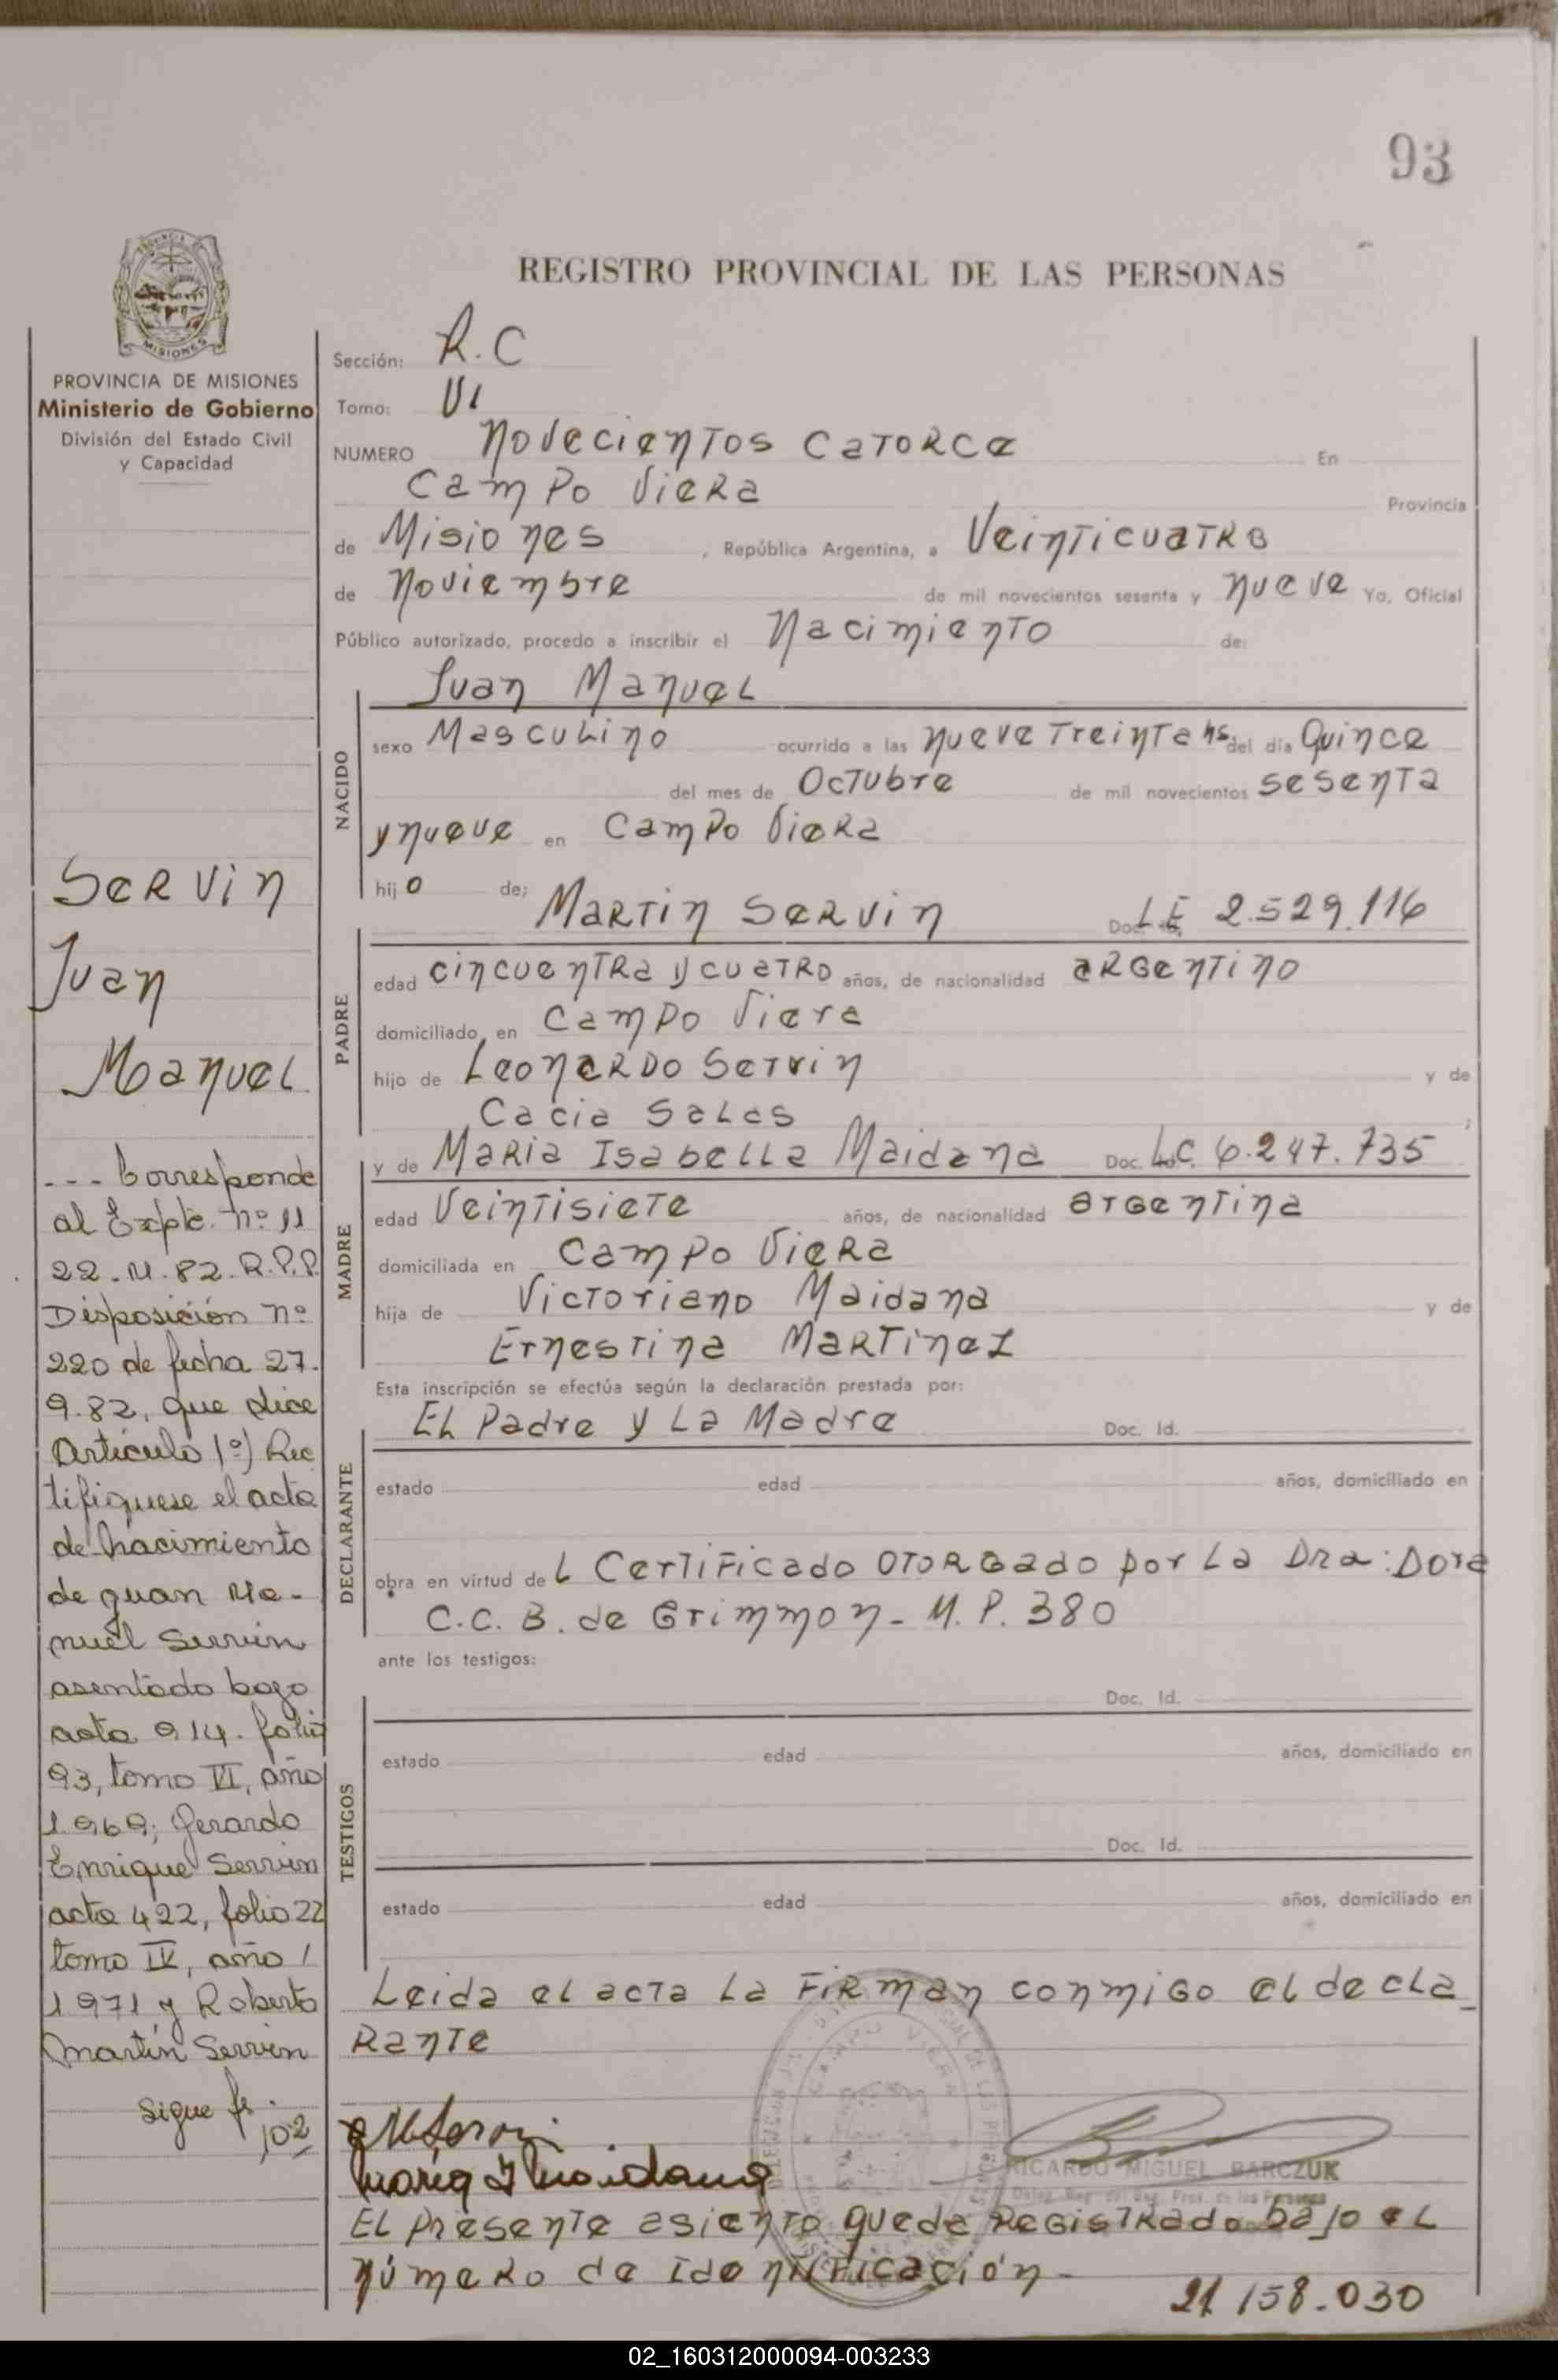 93
REGISTRO PROVINCIAL DE LAS PERSONAS
MISIONES
PROVINCIA DE MISIONES
Ministerio de Gobierno
División del Estado Civil
y Capacidad
Sección: R.C
Tomo: VI
NUMERO Novecientos Catorce En
Campo Viera Provincia
de Misiones, República Argentina, a Veinticuatro
de Noviembre de mil novecientos sesenta y nueve Yo, Oficial
Público autorizado, procedo a inscribir el Nacimiento de:
NACIDO
Juan Manuel
sexo Masculino ocurrido a las nueve Treinta hs del día Quince
del mes de Octubre de mil novecientos sesenta
y nueve en Campo Viera
hijo de: Martin Servin Doc. L.E 2.529.116
PADRE
edad cincuentra y cuatro años, de nacionalidad argentino
domiciliado en Campo Viera
hijo de Leonardo Servin y de
Cacia Sales
y de Maria Isabella Maidana Doc. L.C. 6.247.735
MADRE
edad Veintisiete años, de nacionalidad argentina
domiciliada en Campo Viera
hija de Victoriano Maidana y de
Ernestina Martinez
Esta inscripción se efectúa según la declaración prestada por:
DECLARANTE
El Padre y La Madre Doc. Id.
estado edad años, domiciliado en
obra en virtud del Certificado otorgado por La Dra: Dora
C.C. B. de Grimmon - M. P. 380
ante los testigos:
TESTIGOS
Doc. Id.
estado edad años, domiciliado en
Doc. Id.
estado edad años, domiciliado en
Leida el acta la firman conmigo el decla_
rante
Maria I Maidana
RICARDO MIGUEL BARCZUK
El presente asiento queda Registrado bajo el
número de idontificación -
21 158.030
Servin
Juan
Manuel
--- Corresponde
al Expte. nº 11
22.M.82.R.P.P.
Disposición nº
220 de fecha 27.
9.82, que dice
Artículo 1º) Rec
tifiquese el acta
de nacimiento
de Juan Ma-
nuel Servin
asentado bajo
acta 914. folio
93, tomo VI, año
1969; Gerardo
Enrique Servin
acta 422, folio 22
tomo IV, año
1971 y Roberto
Martín Servin
Sigue fs.
102
02_160312000094-003233